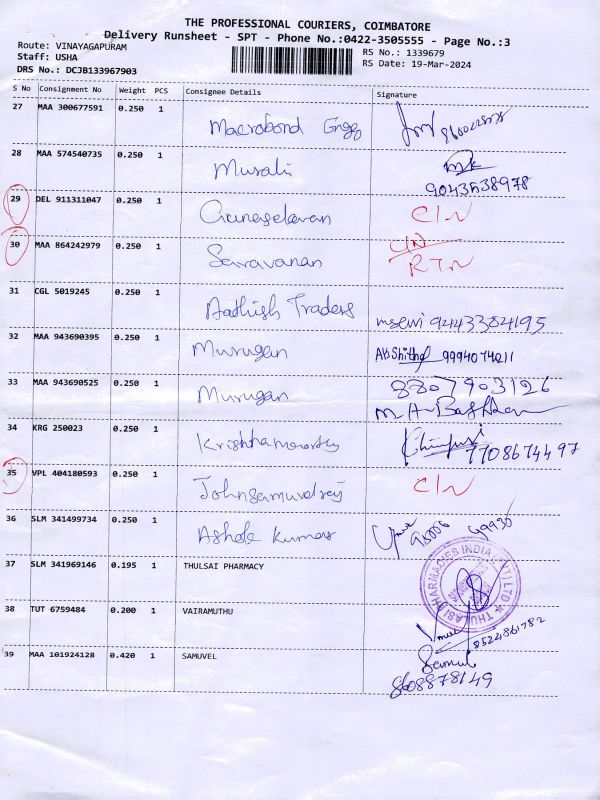 THE PROFESSIONAL COURIERS, COIMBATORE
Delivery Runsheet - SPT - Phone No.:0422-3505555 - Page No.:3
Route: VINAYAGAPURAM
Staff: USHA
DRS No.: DCJB133967903
RS No.: 1339679
RS Date: 19-Mar-2024
S No Consignment No Weight PCS Consignee Details Signature
27 MAA 300677591 0.250 1 Macrobond Engg
28 MAA 574540735 0.250 1 Murali
9043538978
29 DEL 911311047 0.250 1 Gunaselavan CIN
30 MAA 864242979 0.250 1 Saravanan CIN
RTN
31 CGL 5019245 0.250 1 Aathish Traders 9443384195
32 MAA 943690395 0.250 1 Murugan 9994074211
33 MAA 943690525 0.250 1 Murugan 8807903126
34 KRG 250023 0.250 1 Krishnamoorthy 7708674497
35 VPL 404180593 0.250 1 CIN
36 SLM 341499734 0.250 1 Ashok Kumar
37 SLM 341969146 0.195 1 THULSAI PHARMACY
THULASI PHARMACIES INDIA (P) LTD
38 TUT 6759484 0.200 1 VAIRAMUTHU
8524861782
39 MAA 101924128 0.420 1 SAMUVEL Samul
8608878149